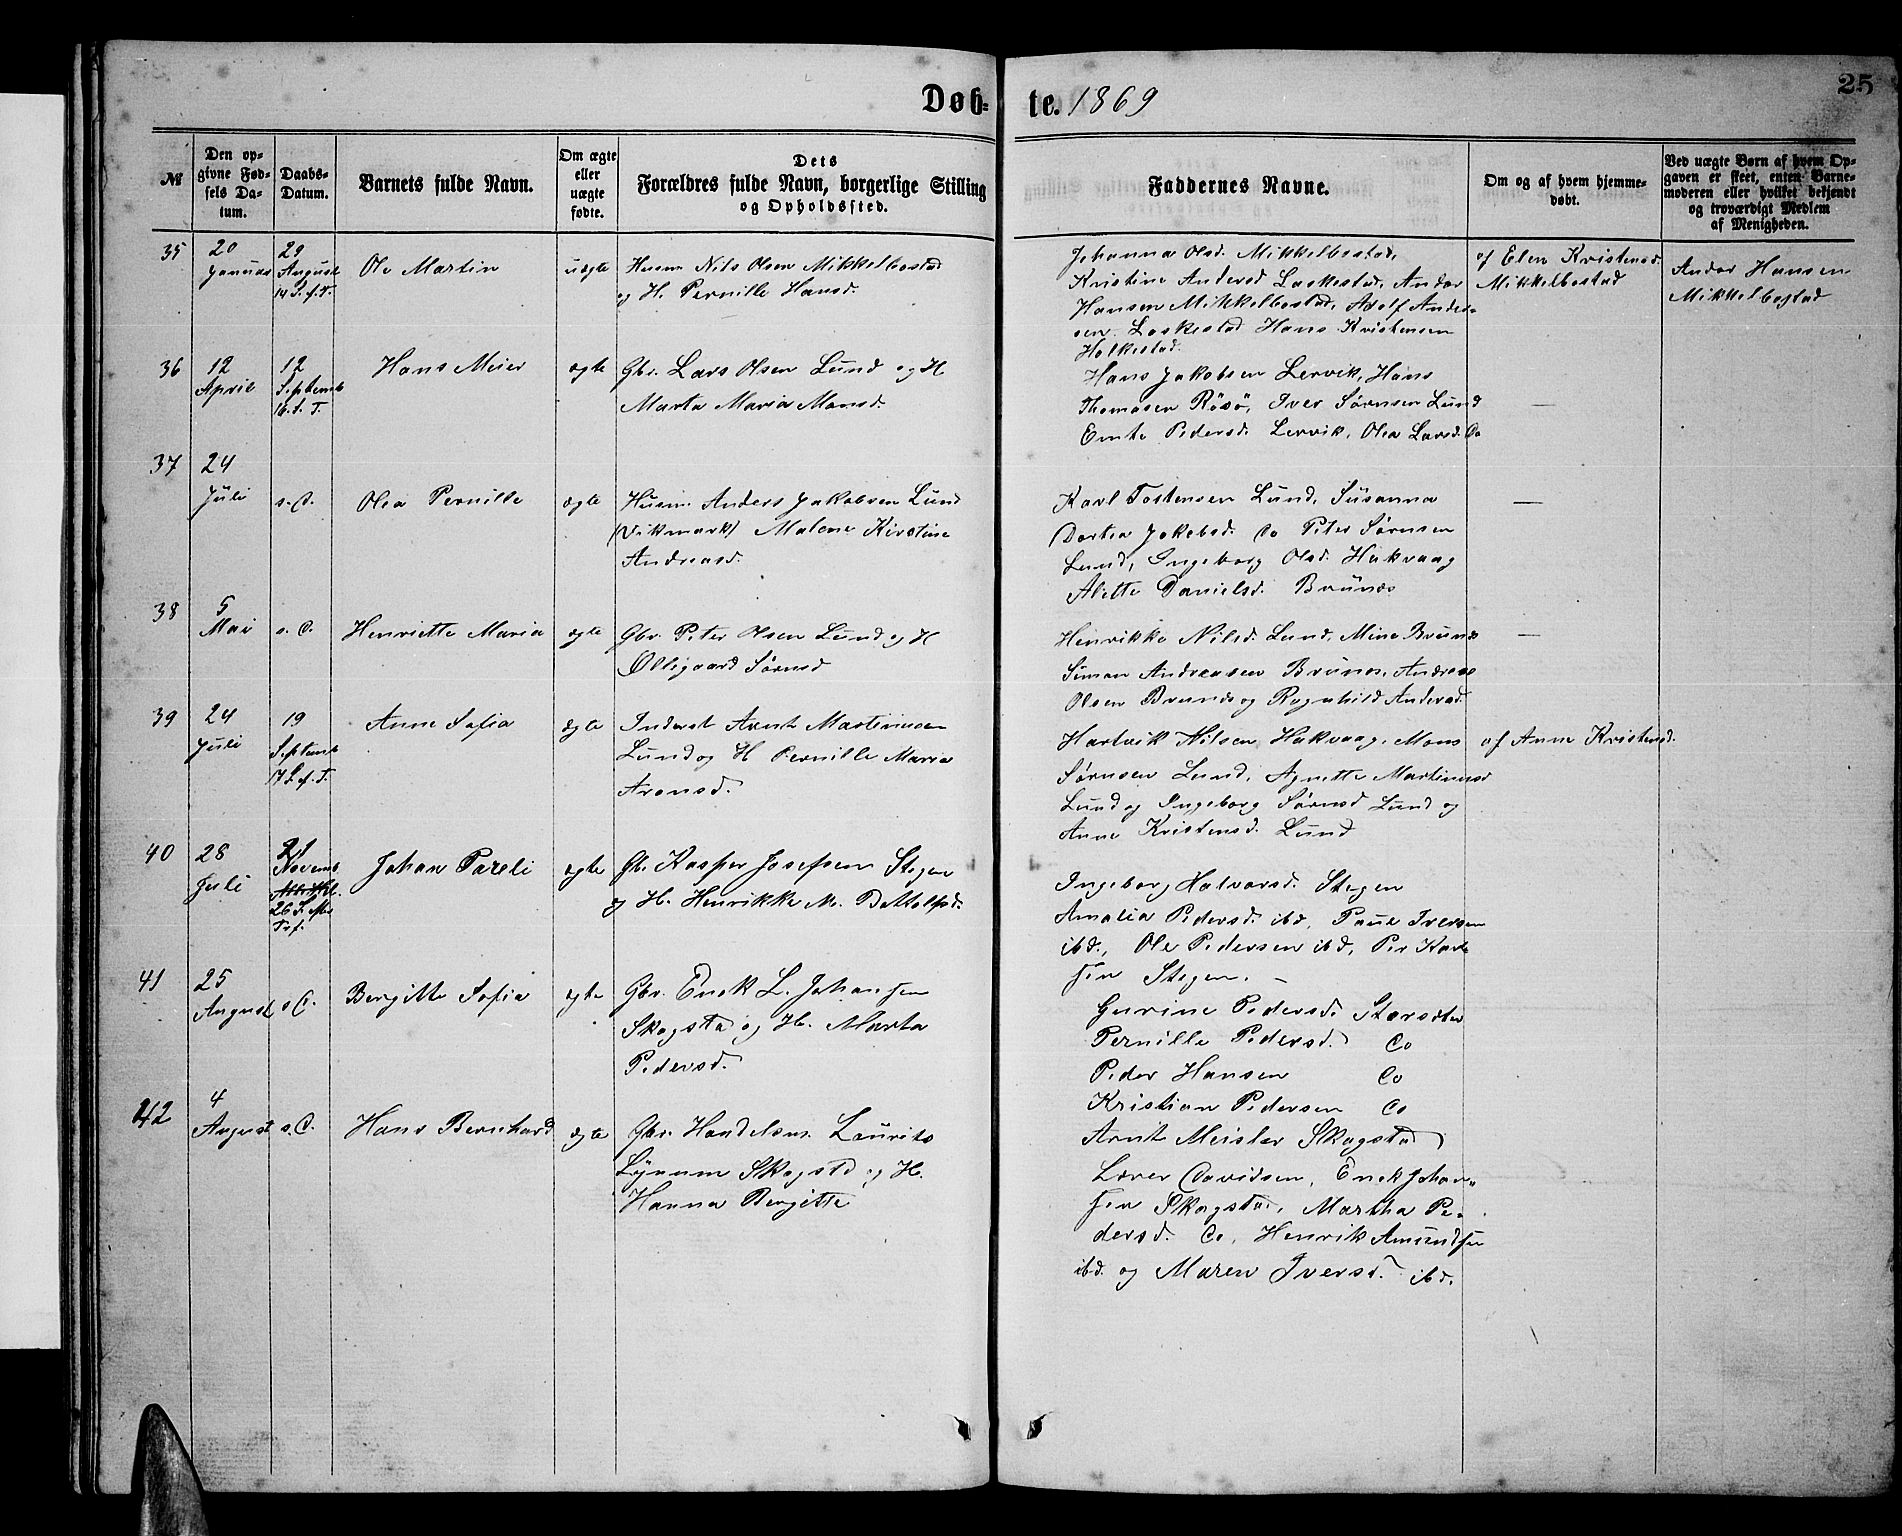 25
Døb- te. 1869
№
Den op-
givne Fød-
sels Da-
tum.
Daabs-
Datum.
Barnets fulde Navn.
Om ægte
eller
uægte
fødte.
Dets
Forældres fulde Navn, borgerlige Stilling
og Opholdssted.
Faddernes Navne.
Om og af hvem hjemme-
døbt.
Ved uægte Børn af hvem Op-
gaven er skeet, enten Barne-
moderen eller hvilket bekjendt
og troværdigt Medlem
af Menigheden.
35
20
Januar
29
August
14 S. e. T.
Ole Martin
uægte
Husm Nils Olsen Mikkelbostad
og H. Pernille Hansd.
Johanna Olsd. Mikkelbostad,
Kristine Andersd Laskestad, Andor
Hansen Mikkelbostad, Adolf Ander-
sen Laskestad Hans Kristensen
Holkestad.
af Elen Kristensd.
Mikkelbostad
Andor Hansen
Mikkelbostad
36
12
April
12
Septemb
16. S. T.
Hans Meier
ægte
Gbr. Lars Olsen Lund og H
Marta Maria Monsd.
Hans Jakobsen Lervik, Hans
Thomasen Rösö, Iver Sørnsen Lund
Emte Pedersd. Lervik, Olea Larsd. Do
—
37
24
Juli
s. D.
Olea Pernille
ægte
Husm Anders Jakobsen Lund
(Vikmark) Malene Kirstine
Andreasd.
Karl Tostensen Lund, Susanna
Dortea Jakobsd. Do Peter Sørnsen
Lund, Ingeborg Olsd. Hakvaag
Alette Danielsd. Brunes
—
38
5
Mai
s. D.
Henriette Maria
ægte
Gbr. Peter Olsen Lund og H
Olligaard Sørnsd
Henrikke Nilsd. Lund, Mine Brunes
Simon Andreasen Brunes, Andreas
Olsen Brunes og Ragnhild Andersd.
—
39
24
Juli
19
Septemb
17 S. e. T.
Anne Sofia
ægte
Inderst Arnt Martinusen
Lund og H Pernille Maria
Aronsd.
Hartvik Nilsen Hakvaag, Mons
Sørnsen Lund, Agnette Martinusd
Lund og Ingeborg Sørnsd Lund og
Anne Kristensd. Lund
af Anne Kristensd.
40
28
Juli
21
Novemb
26 S. efter
Trf.
Johan Pareli
ægte
Gb. Kasper Josefsen Stegen
og H. Henrikke M. Bottolfsd.
Ingeborg Halvorsd. Stegen
Amalia Pedersd. ibd, Paul Iversen
ibd., Ole Pedersen ibd, Per Karl
sen Stegen. —
41
25
August
s D.
Bergitte Sofia
ægte
Gbr. Enok L. Johansen
Skogstad og H. Marta
Pedersd.
Gurine Pedersd. Storsæter
Pernille Pedersd. Do
Peder Hansen Do
Kristian Pedersen Do
Arnt Meisler Skogstad
42
4
August
s. D.
Hans Bernhard
ægte
Gbr. Handelsm. Laurits
Lynum Skogstd og H.
Hanna Bergitte
Lærer Davidsen, Enok Johan-
sen Skogstad, Martha Pe-
dersd. Do, Henrik Amundsen
ibd. og Maren Iversd. ibd.